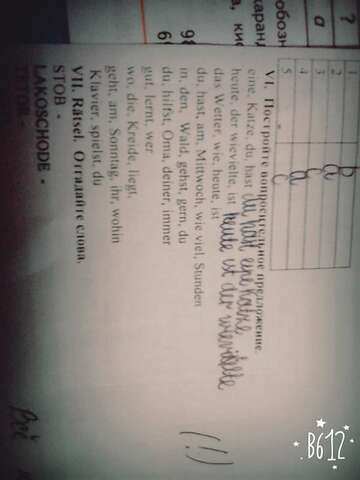 обозн
каранд
а, ки
?
а
98
1 b
2 a
3 c
4 a
5 c
VI. Постройте вопросительное предложение.
eine, Katze, du, hast du hast eine Katze
heute, der wievielte, ist heute ist der wievielte
das Wetter, wie, heute, ist
du, hast, am, Mittwoch, wie viel, Stunden
in, den, Wald, gehst, gern, du
du, hilfst, Oma, deiner, immer
gut, lernt, wer
wo, die, Kreide, liegt,
geht, am, Sonntag, ihr, wohin
Klavier, spielst, du
(!)
VII. Rätsel. Отгадайте слова.
STOB -
LAKOSCHODE -
B612